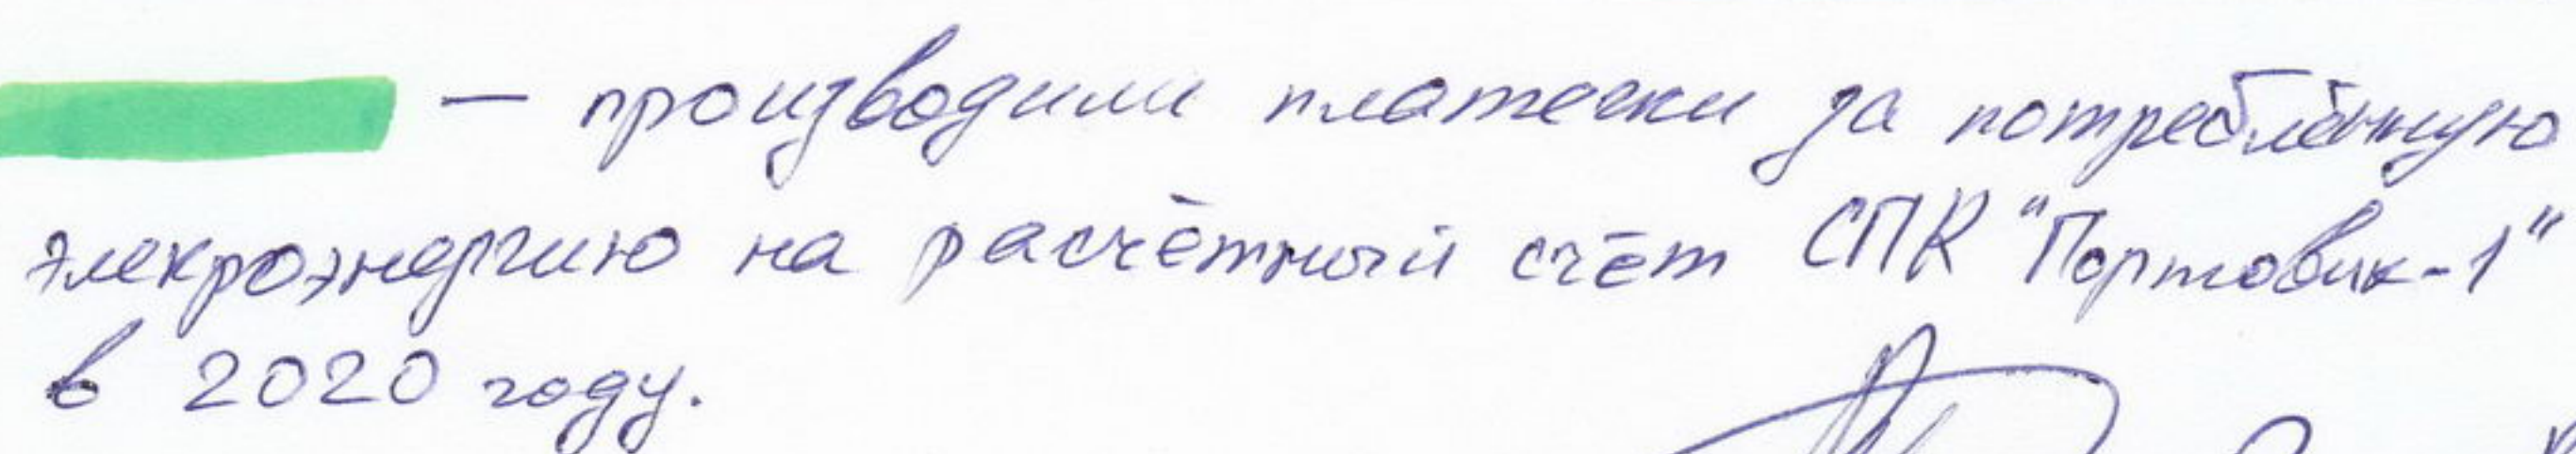 — производили платежи за потреблённую
элекроэнергию на расчётный счёт СПК "Портовик-1"
в 2020 году.